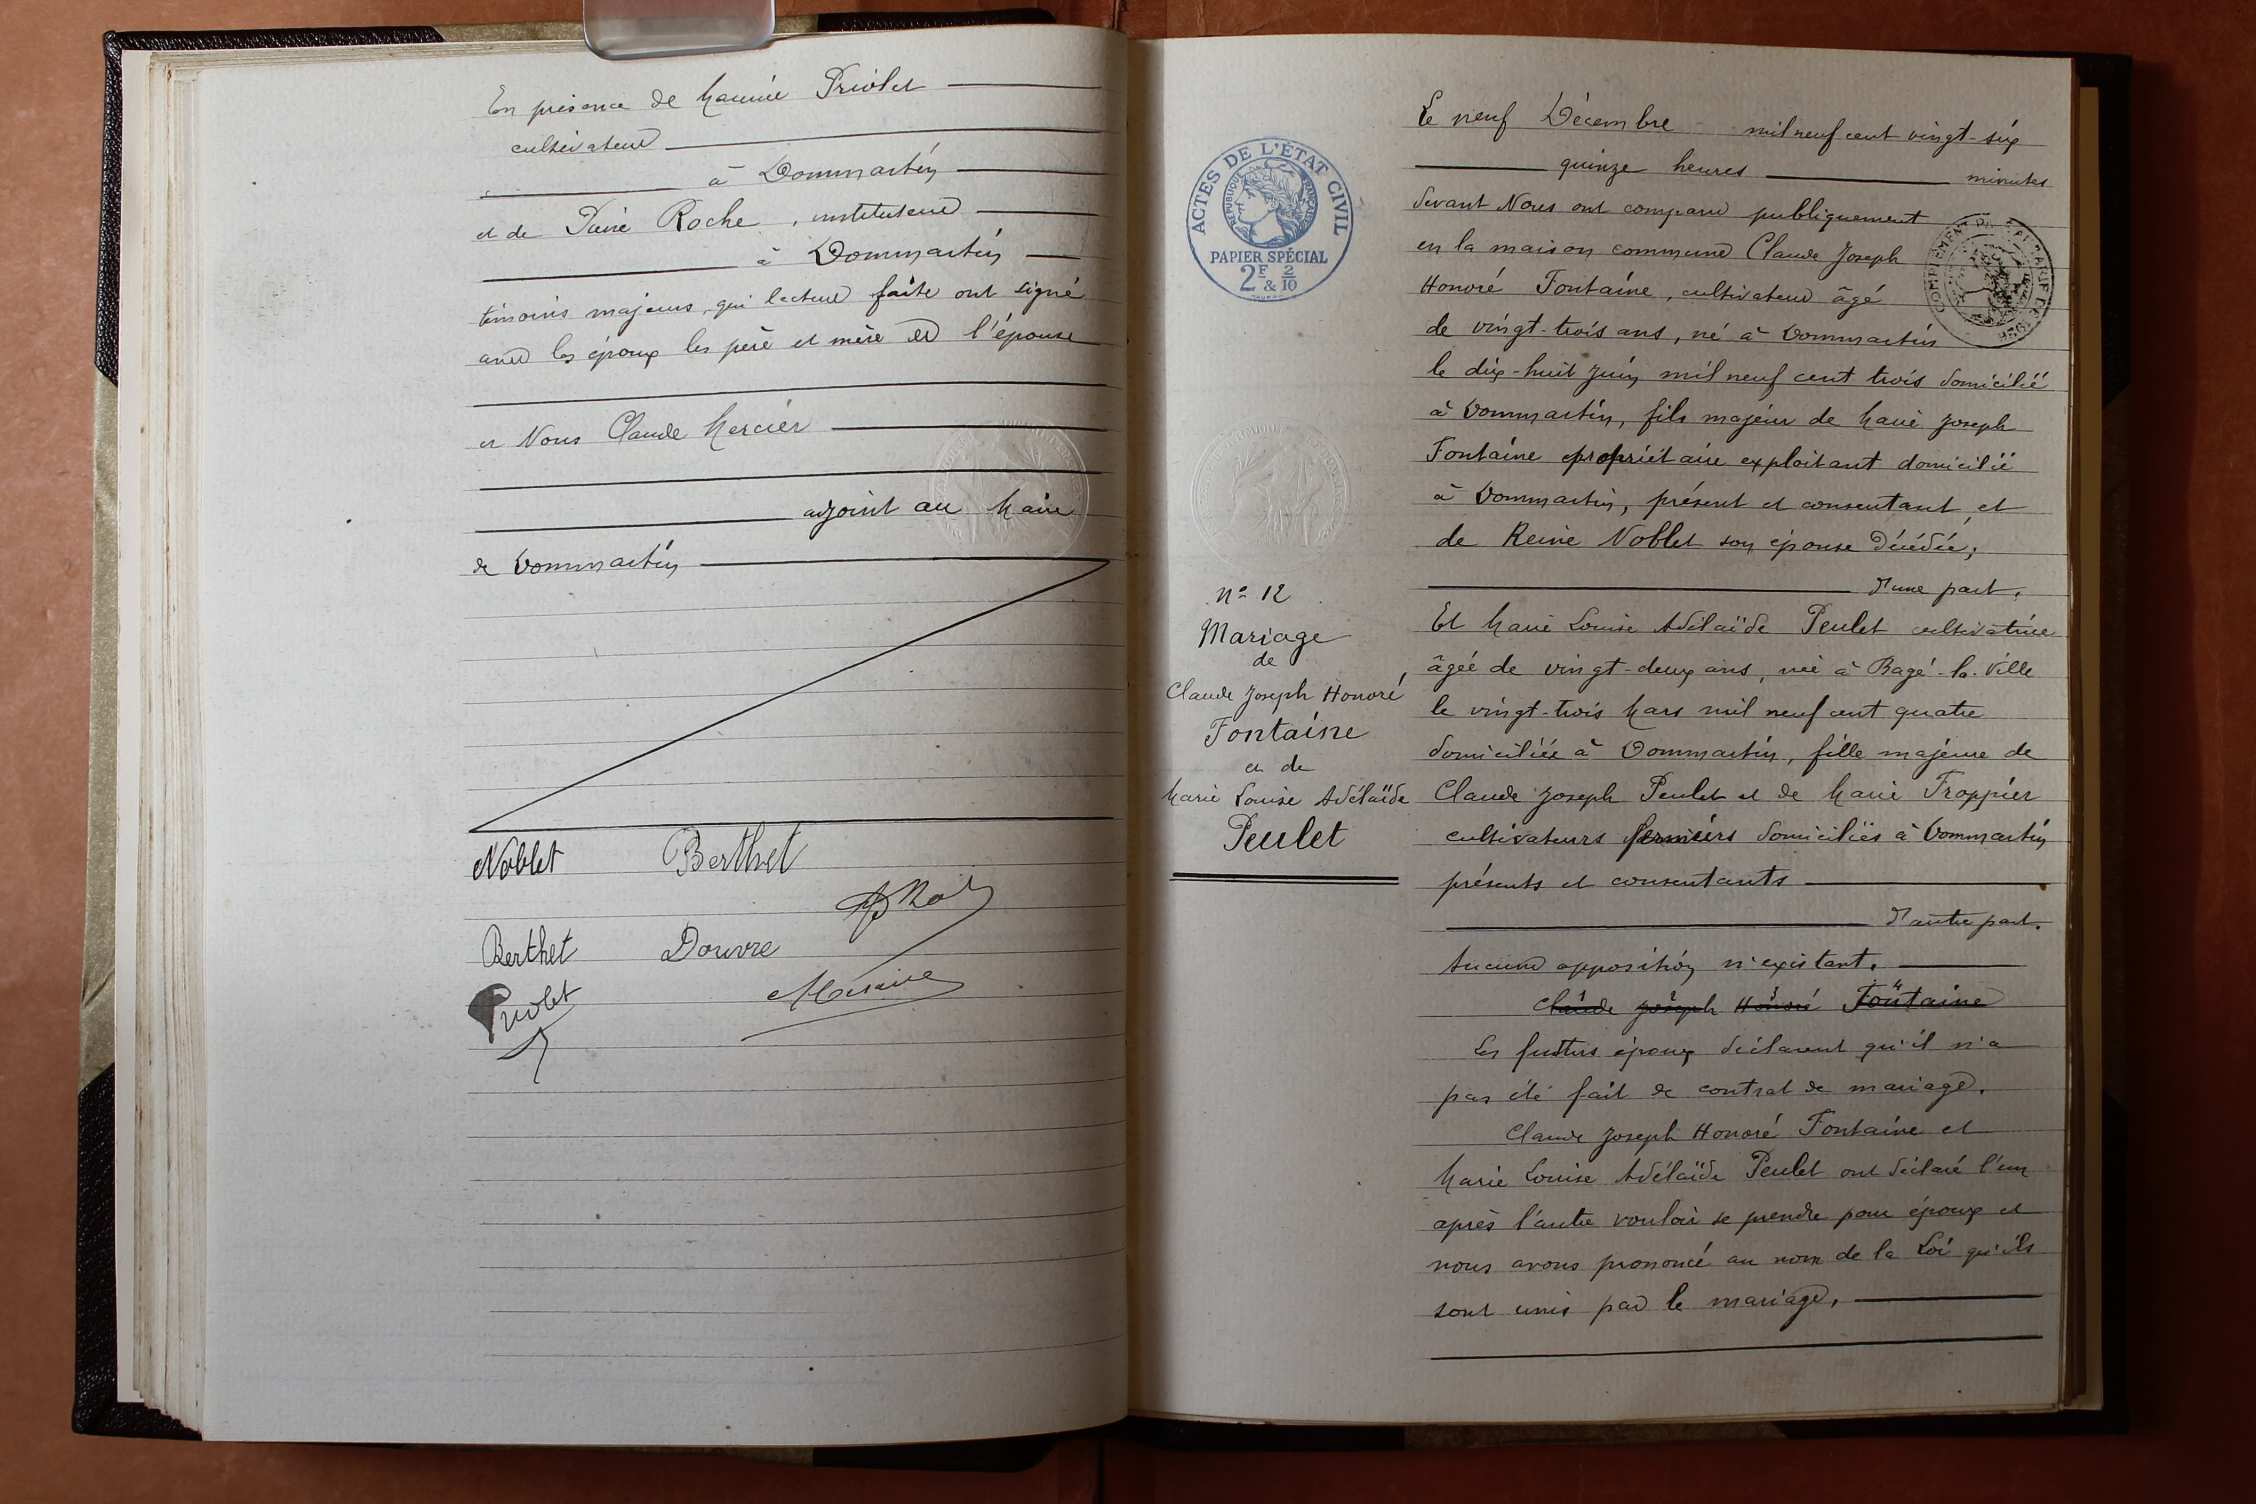 En présence de Maurice Priolet
cultivateur
à Dommartin
et de Pierre Roche, instituteur
à Dommartin
témoins majeurs, qui lecture faite ont signé
avec les époux les père et mère de l'épouse
et Nous Claude Mercier
adjoint au Maire
de Dommartin
Noblet Berthet
Berthet Douvre
Priolet
ACTES DE L'ÉTAT CIVIL
RÉPUBLIQUE FRANÇAISE
PAPIER SPÉCIAL
2F & 2/10
No 12
Mariage
de
Claude Joseph Honoré
Fontaine
et de
Marie Louise Adélaïde
Peulet
Le neuf Décembre mil neuf cent vingt-six
quinze heures minutes
devant Nous ont comparu publiquement
en la maison commune Claude Joseph
Honoré Fontaine, cultivateur âgé
de vingt-trois ans, né à Dommartin
le dix-huit Juin mil neuf cent trois domicilié
à Dommartin, fils majeur de Marie Joseph
Fontaine propriétaire exploitant domicilié
à Dommartin, présent et consentant, et
de Reine Noblet son épouse décédée,
d'une part,
Et Marie Louise Adélaïde Peulet cultivatrice
âgée de vingt-deux ans, née à Bagé-la-Ville
le vingt-trois Mars mil neuf cent quatre
domiciliée à Dommartin, fille majeure de
Claude Joseph Peulet et de Marie Froppier
cultivateurs fermiers domiciliés à Dommartin
présents et consentants
d'autre part.
Aucune opposition n'existant.
Claude Joseph Honoré Fontaine
Les futurs époux déclarent qu'il n'a
pas été fait de contrat de mariage.
Claude Joseph Honoré Fontaine et
Marie Louise Adélaïde Peulet ont déclaré l'un
après l'autre vouloir se prendre pour époux et
nous avons prononcé au nom de la Loi qu'ils
sont unis par le mariage.